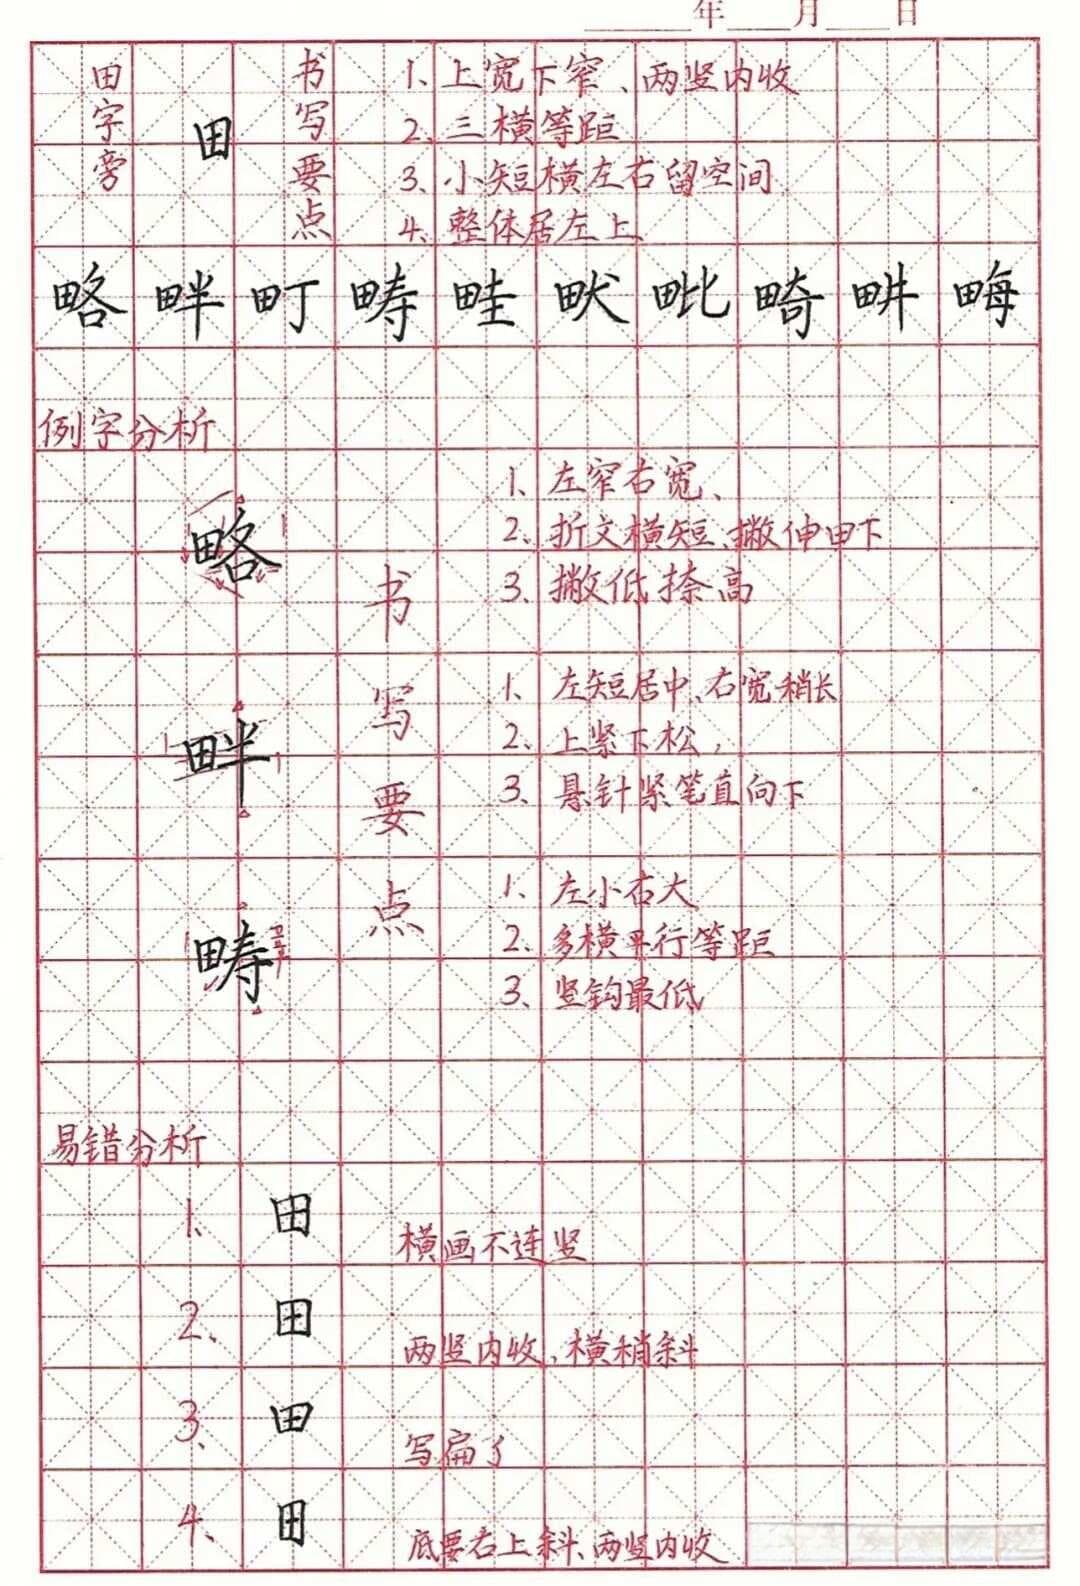 年 月 日
田字旁
田
书写要点
1、上宽下窄、两竖内收
2、三横等距
3、小短横左右留空间
4、整体居左上
略畔町畴畦畎毗畸畊畮
例字分析
略
畔
畴
书写要点
1、左窄右宽、
2、折文横短、撇伸田下
3、撇低捺高
1、左短居中、右宽稍长
2、上紧下松，
3、悬针紧笔直向下
1、左小右大
2、多横平行等距
3、竖钩最低
易错分析
1、田 横画不连竖
2、田 两竖内收、横稍斜
3、田 写扁了
4、田 底要右上斜、两竖内收